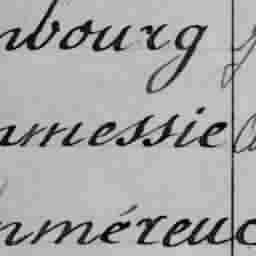 nbourg
nmessie
nméreuc